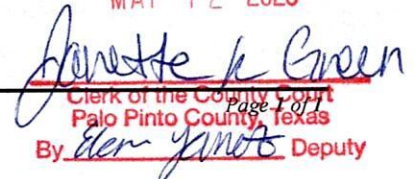 MAY 12 2023
Janette K Green
Clerk of the County Court
Page 1 of 1
Palo Pinto County, Texas
By Deputy